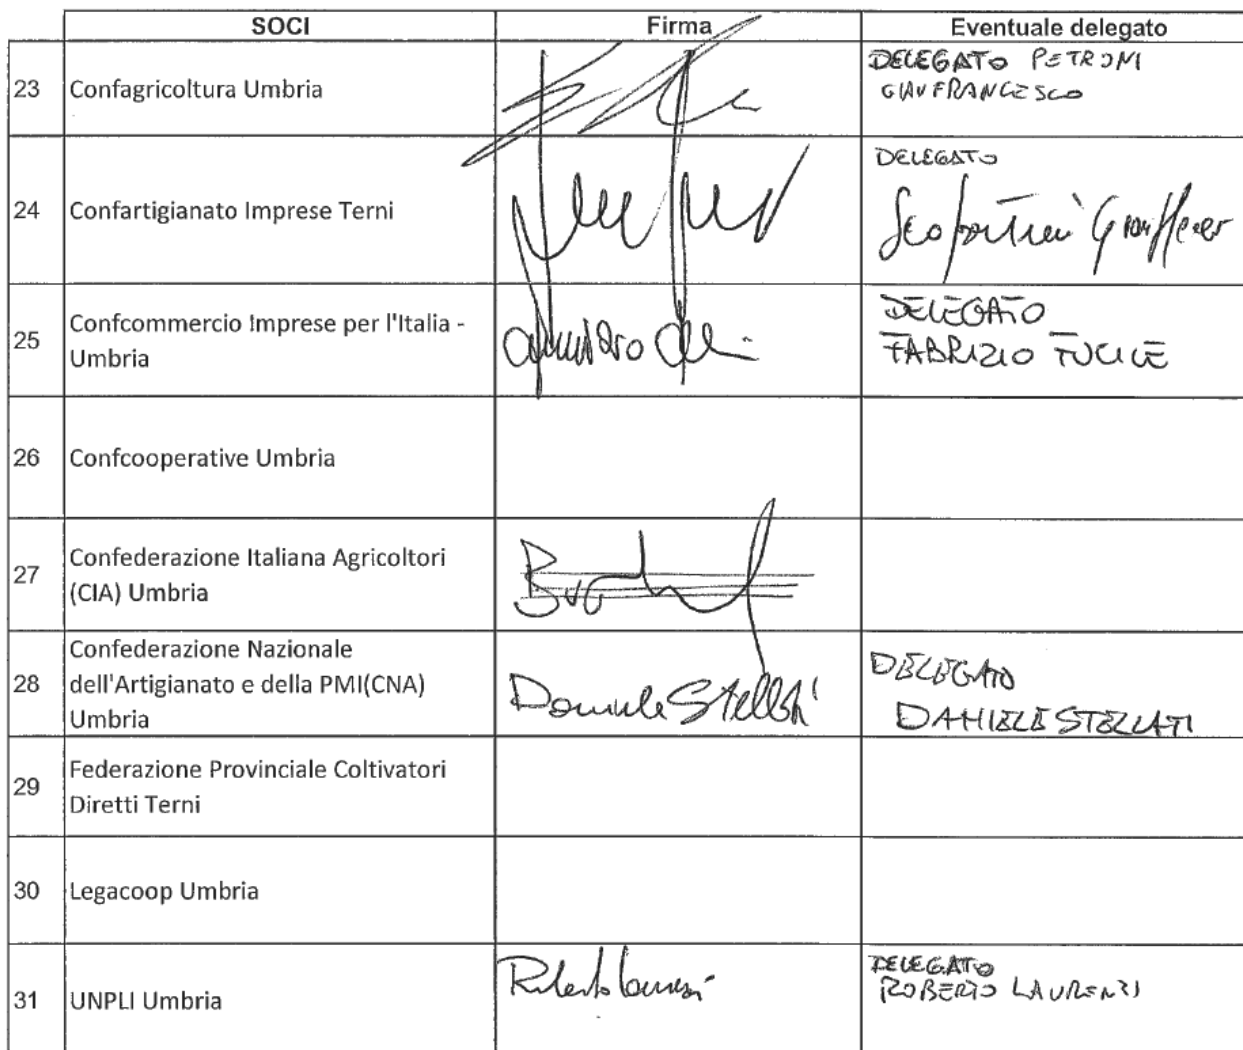 SOCI Firma Eventuale delegato
23 Confagricoltura Umbria DELEGATO PETRONI
GIANFRANCESCO
24 Confartigianato Imprese Terni DELEGATO
25 Confcommercio Imprese per l'Italia -
Umbria DELEGATO
FABRIZIO
26 Confcooperative Umbria
27 Confederazione Italiana Agricoltori
(CIA) Umbria
28 Confederazione Nazionale
dell'Artigianato e della PMI(CNA)
Umbria Daniele Stellati DELEGATO
DANIELE STELLATI
29 Federazione Provinciale Coltivatori
Diretti Terni
30 Legacoop Umbria
31 UNPLI Umbria Roberto Laurenzi DELEGATO
ROBERTO LAURENZI